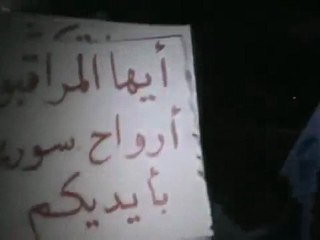 أيها المراقبو
أرواح سوريـ
بأيديكم